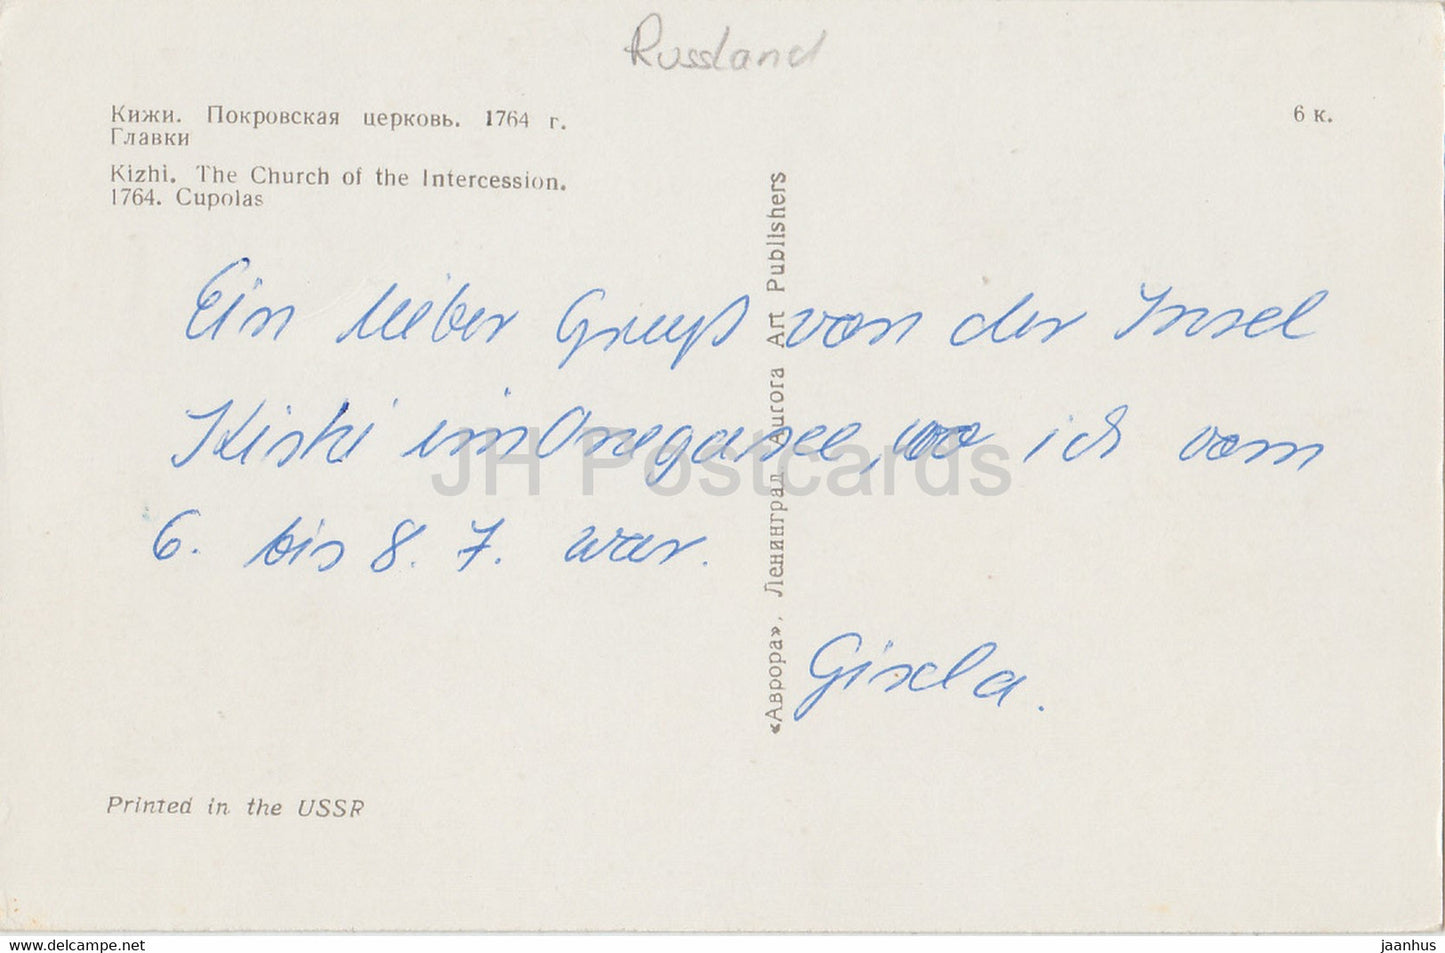 Russland
Кижи. Покровская церковь. 1764 г.
Главки
6 к.
Kizhi. The Church of the Intercession.
1764. Cupolas
Ein lieber Gruß von der Insel
Kishi im Onegasee, wo ich vom
6. bis 8. 7. war.
Gisela.
«Аврора». Ленинград Aurora Art Publishers
Printed in the USSR
JH Postcards
www.delcampe.net
jaanhus